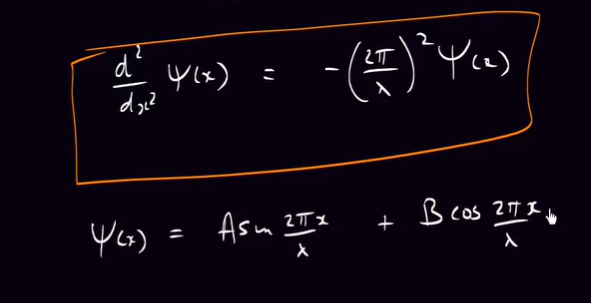 d²/dx² Ψ(x) = -(2π/λ)² Ψ(x)
Ψ(x) = A sin 2πx/λ + B cos 2πx/λ